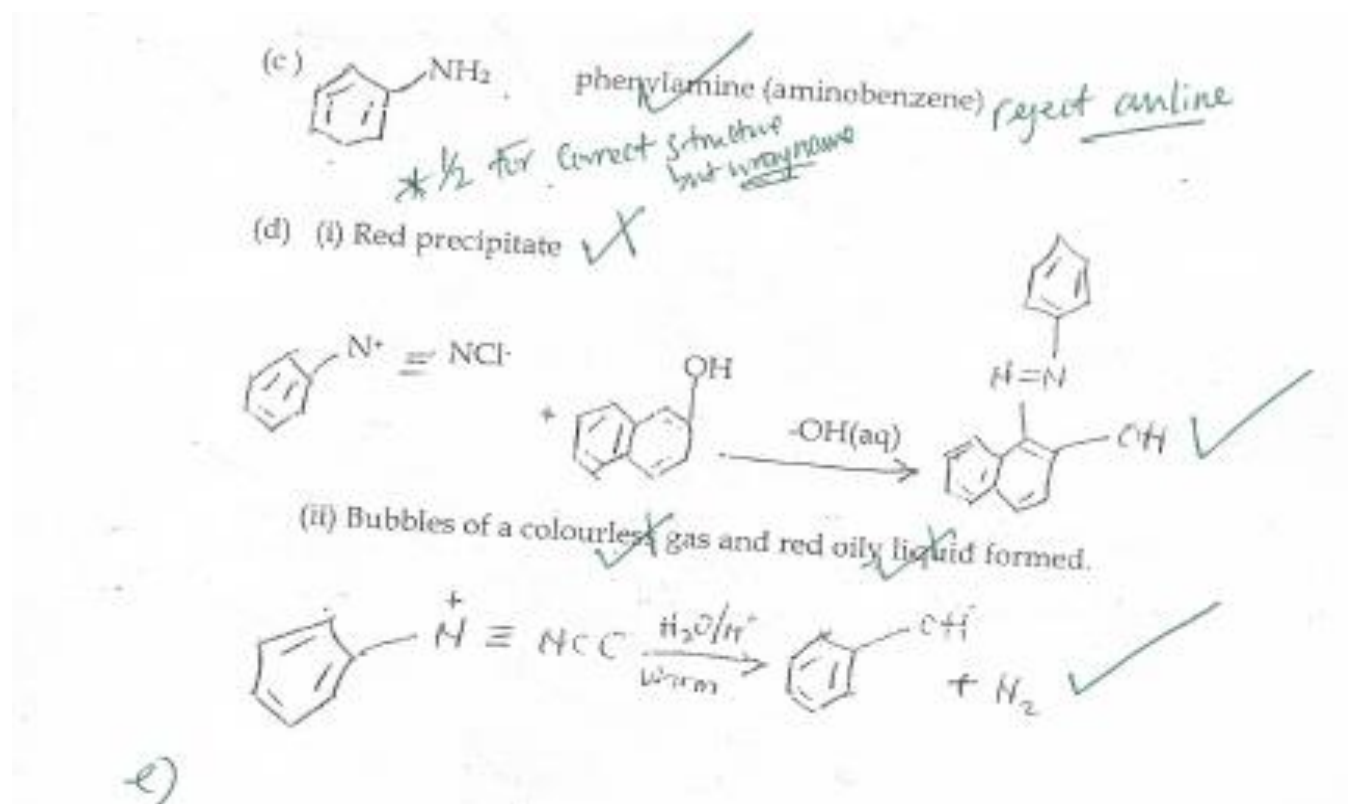 (c) NH₂ phenylamine (aminobenzene) reject anline
* ½ for correct structure
but wrong name
(d) (i) Red precipitate
N+ ≡ NCl-
+ OH -OH(aq) N=N OH
(ii) Bubbles of a colourless gas and red oily liquid formed.
+
N ≡ NCC H₂O/H+ warm OH + N₂
e)